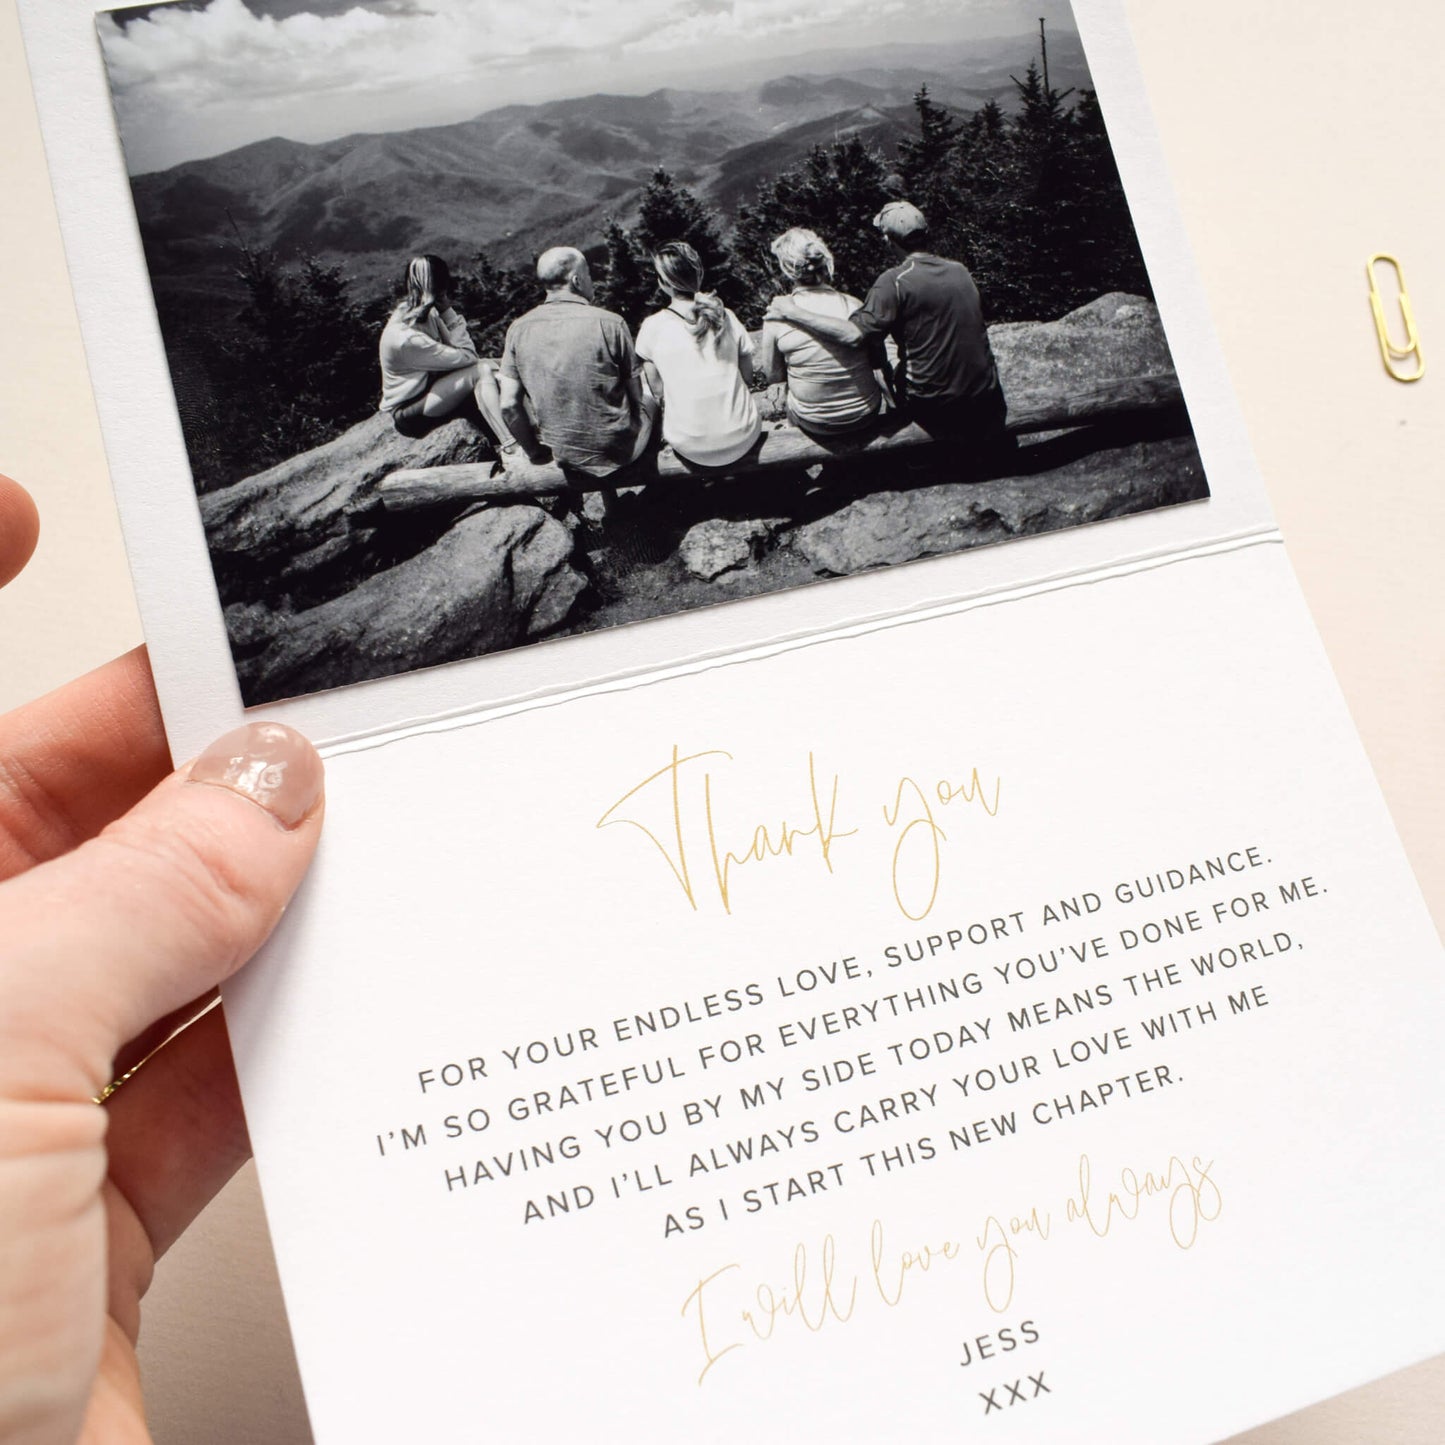 Thank you
FOR YOUR ENDLESS LOVE, SUPPORT AND GUIDANCE.
I'M SO GRATEFUL FOR EVERYTHING YOU'VE DONE FOR ME.
HAVING YOU BY MY SIDE TODAY MEANS THE WORLD,
AND I'LL ALWAYS CARRY YOUR LOVE WITH ME
AS I START THIS NEW CHAPTER.
I will love you always
JESS
XXX